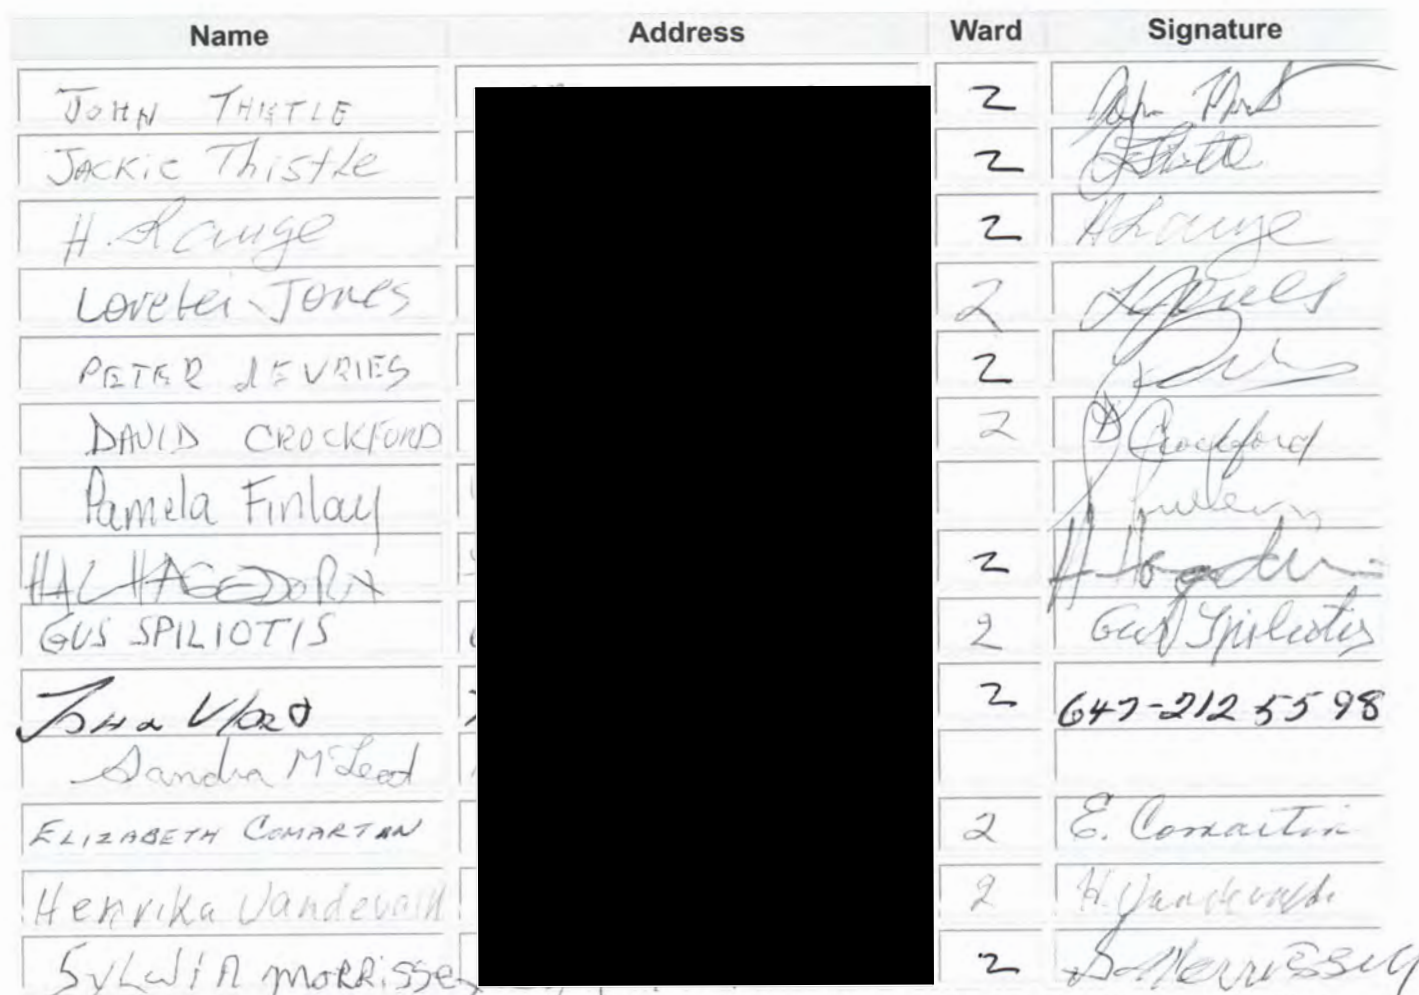 Name Address Ward Signature
JOHN THISTLE 2
JACKIE Thistle 2
H. Lange 2 H Lange
Lorelei Jones 2 L Jones
PETER dEVRIES 2
DAVID CROCKFORD 2 D Crockford
Pamela Finlay
HAL HAGEDORN 2
GUS SPILIOTIS 2 Gus Spiliotis
2 647-212 55 98
Sandra McLeod
ELIZABETH COMARTIN 2 E. Comartin
Henrika 2 H.
SYLWIA MORRISSE 2 S. Morrissey